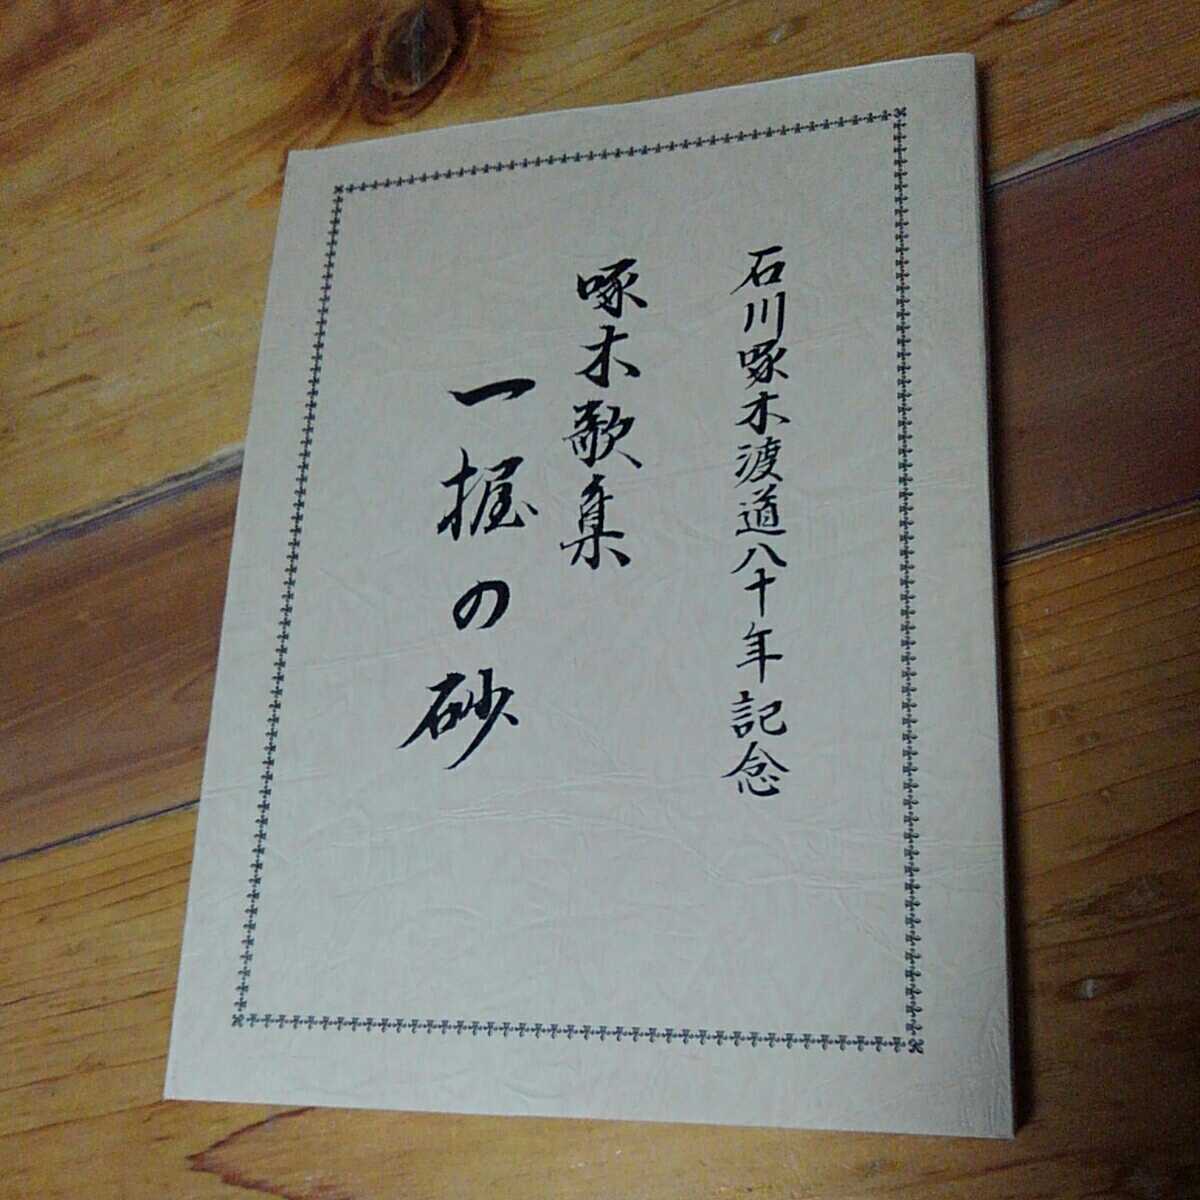 石川啄木渡道八十年記念
啄木歌集
一握の砂